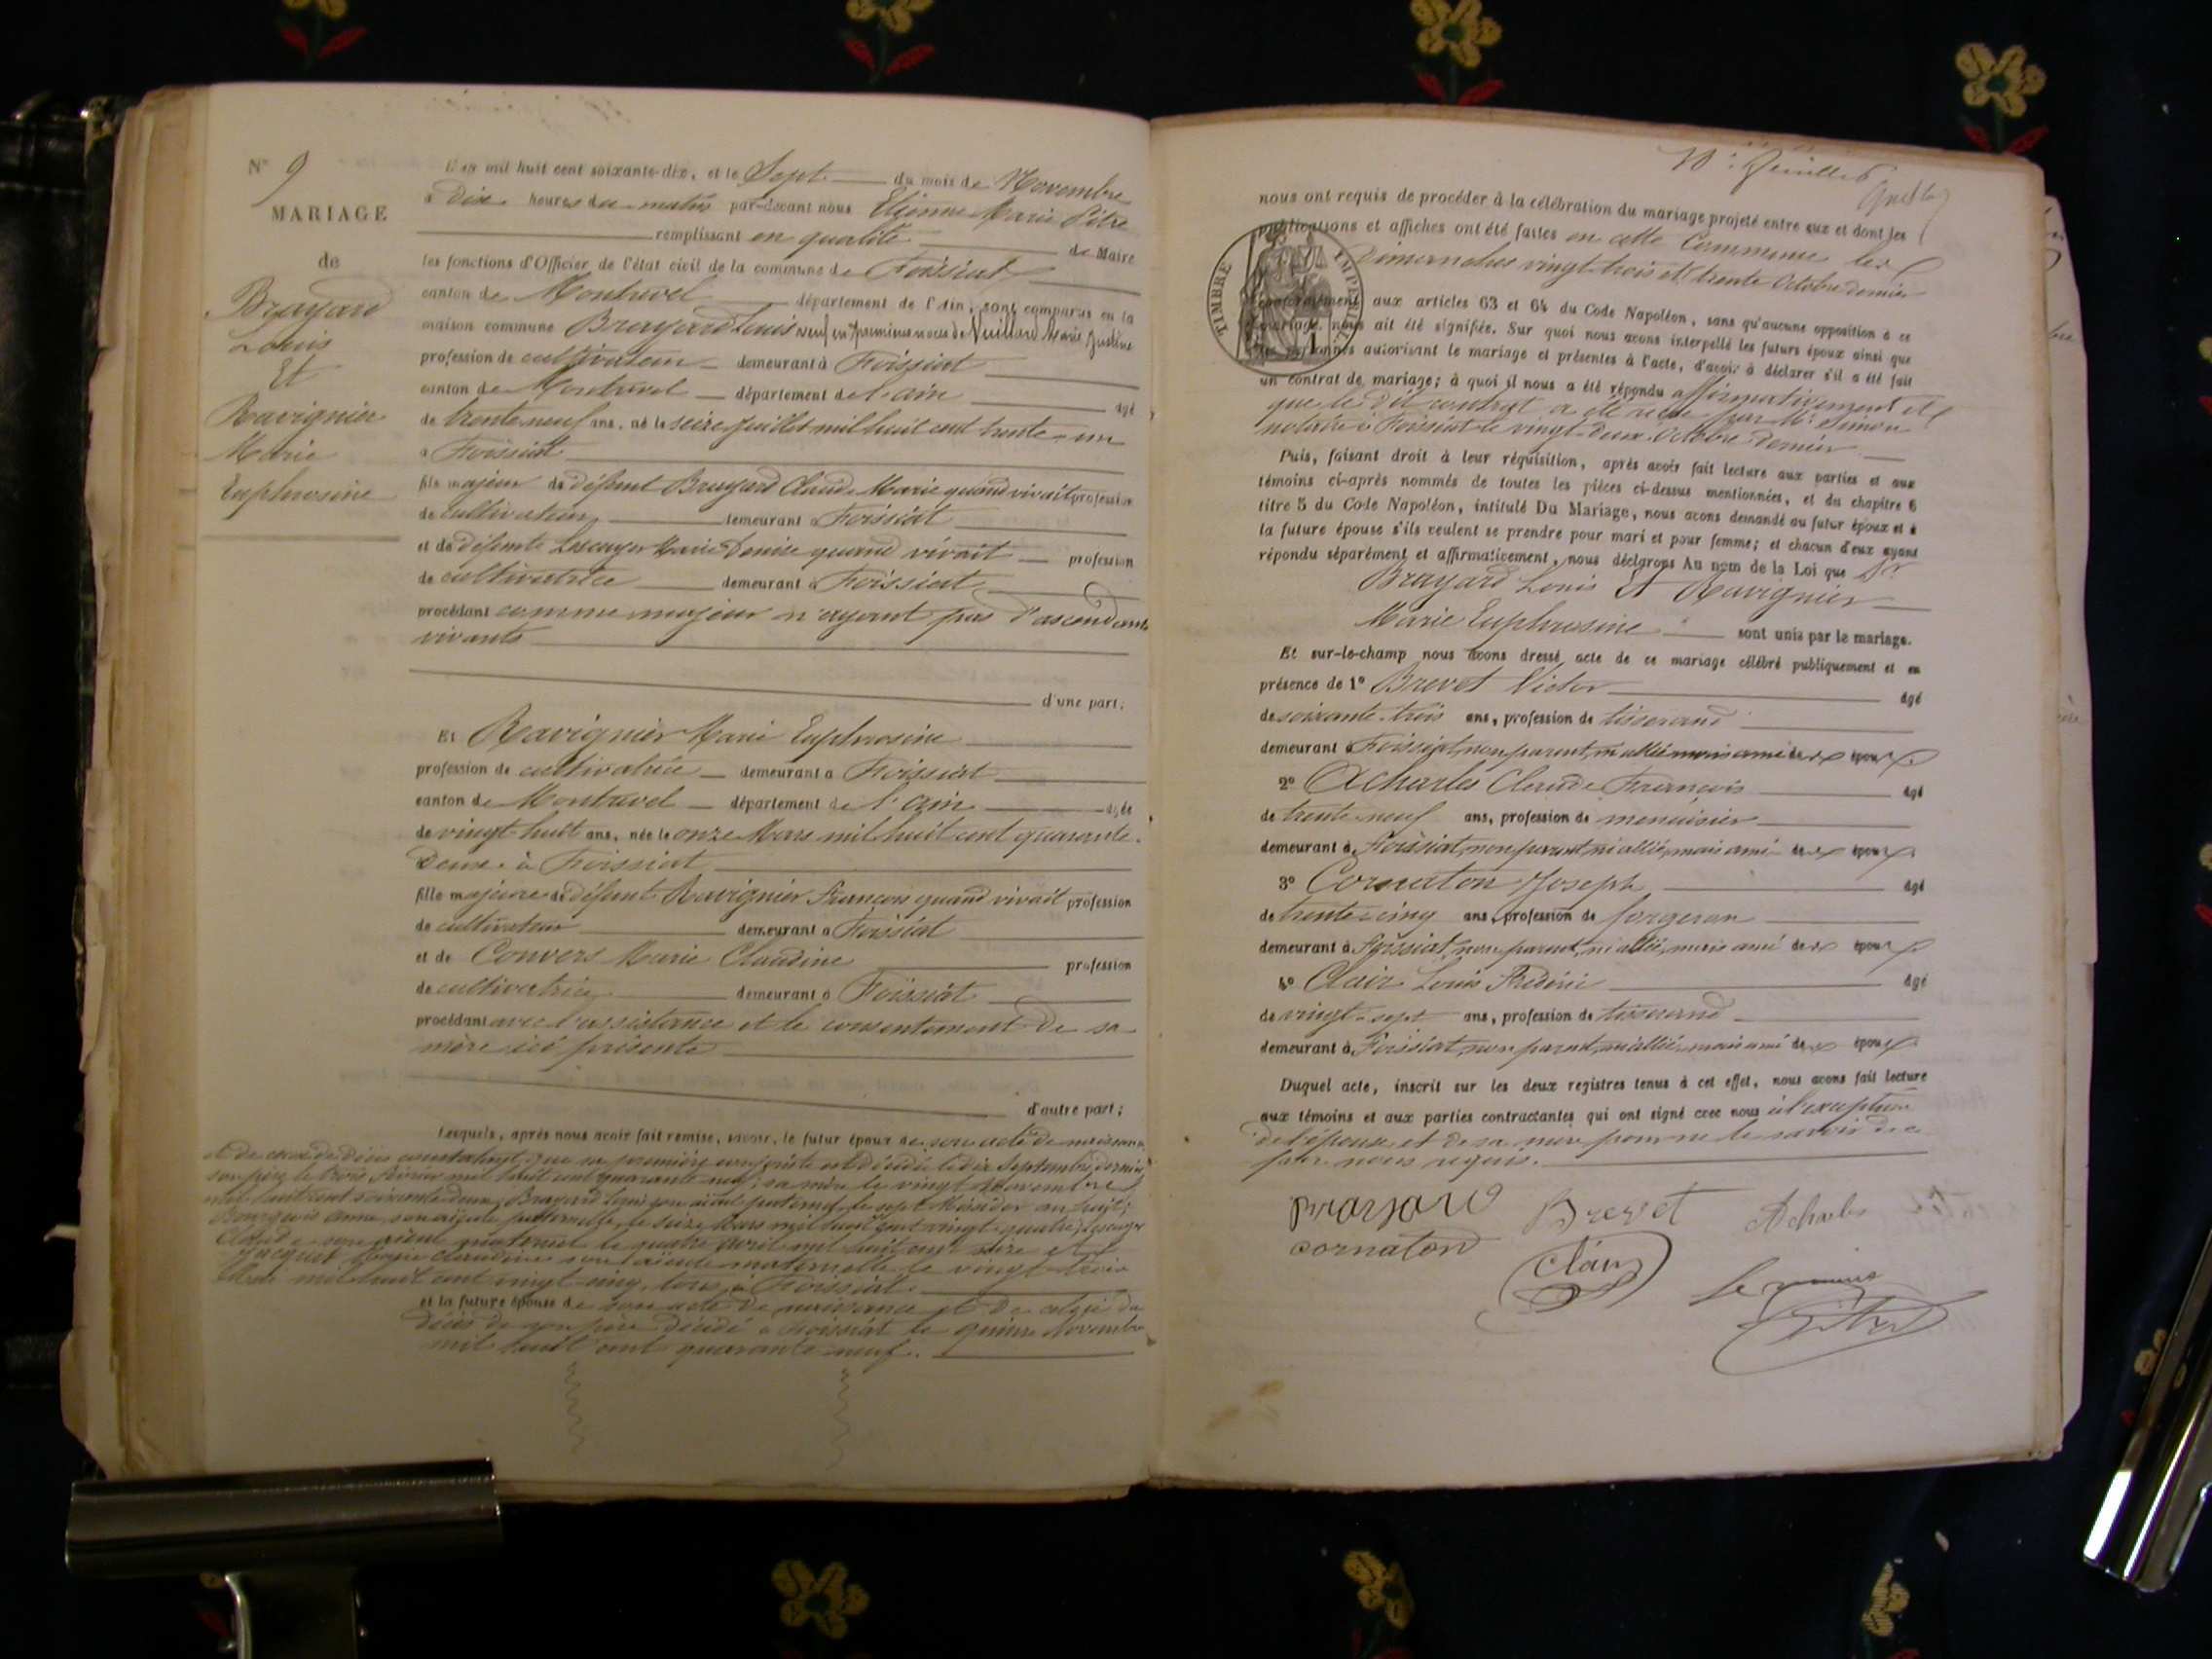 N° 9
MARIAGE
de
Brayard
Louis
Et
Ravignier
Marie
Euphrosine
L'an mil huit cent soixante-dix, et le Sept du mois de Novembre
à Dix heures du matin par-devant nous Etienne Marie Pitre
remplissant en qualité de Maire
les fonctions d'Officier de l'état civil de la commune de Foissiat
canton de Montrevel département de l'Ain, sont comparus en la
maison commune Brayard Louis veuf en premières noces de Vuillard Marie Justine
profession de cultivateur demeurant à Foissiat
canton de Montrevel département de l'ain âgé
de trente neuf ans, né le seize Juillet mil huit cent trente-un
à Foissiat
fils majeur de défunt Brayard Claude Marie quand vivait profession
de cultivateur demeurant à Foissiat
et de défunte Lescuyer Marie Denise quand vivait profession
de cultivatrice demeurant à Foissiat
procédant comme majeur n'ayant pas d'ascendants
vivants
d'une part;
Et Ravignier Marie Euphrosine
profession de cultivatrice demeurant à Foissiat
canton de Montrevel département de l'ain âgée
de vingt huit ans, née le onze Mars mil huit cent quarante-
Deux à Foissiat
fille majeure de défunt Ravignier François quand vivait profession
de cultivateur demeurant à Foissiat
et de Convers Marie Claudine profession
de cultivatrice demeurant à Foissiat
procédant avec l'assistance et le consentement de sa
mère ici présente
d'autre part;
Lesquels, après nous avoir fait remise, savoir, le futur époux de son acte de naissance
et de ceux de décès constatant que sa première conjointe est décédée le dix Septembre dernier
son père le trois Février mil huit cent quarante neuf; sa mère le vingt Novembre
mil huit cent soixante deux; Brayard Louis son aïeul paternel, le sept Messidor an huit;
Bourgeois Anne, son aïeule paternelle, le seize Mars mil huit cent vingt-quatre; Lescuyer
Claude son aïeul maternel le quatre avril mil huit cent seize et
Jacquet Marie Claudine son aïeule maternelle le vingt-trois
mil huit cent vingt-cinq, tous à Foissiat
et la future épouse de son acte de naissance et de celui du
décès de son père décédé à Foissiat le quinze Novembre
mil huit cent quarante neuf.
nous ont requis de procéder à la célébration du mariage projeté entre eux et dont les
publications et affiches ont été faites en cette Commune les
Dimanches vingt-trois et trente Octobre dernier
conformément aux articles 63 et 64 du Code Napoléon, sans qu'aucune opposition à ce
mariage nous ait été signifiée. Sur quoi nous avons interpellé les futurs époux ainsi que
les personnes autorisant le mariage et présentes à l'acte, d'avoir à déclarer s'il a été fait
un contrat de mariage; à quoi il nous a été répondu affirmativement et
que le dit contrat a été reçu par Me Simon
notaire à Foissiat le vingt-deux Octobre dernier
TIMBRE IMPERIAL
Puis, faisant droit à leur réquisition, après avoir fait lecture aux parties et aux
témoins ci-après nommés de toutes les pièces ci-dessus mentionnées, et du chapitre 6
titre 5 du Code Napoléon, intitulé Du Mariage, nous avons demandé au futur époux et à
la future épouse s'ils veulent se prendre pour mari et pour femme; et chacun d'eux ayant
répondu séparément et affirmativement, nous déclarons Au nom de la Loi que
Brayard Louis Et Ravignier
Marie Euphrosine sont unis par le mariage.
Et sur-le-champ nous avons dressé acte de ce mariage célébré publiquement et en
présence de 1° Brevet Victor âgé
de soixante-trois ans, profession de tisserand
demeurant à Foissiat, non parent, ni allié mais ami des époux
2° Acharles Claude François âgé
de trente-neuf ans, profession de menuisier
demeurant à Foissiat, non parent, ni allié, mais ami des époux
3° Cornaton Joseph âgé
de trente-cinq ans, profession de forgeron
demeurant à Foissiat, non parent, ni allié, mais ami des époux
4° Clair Louis Frédéric âgé
de vingt-sept ans, profession de tisserand
demeurant à Foissiat, non parent, ni allié, mais ami des époux
Duquel acte, inscrit sur les deux registres tenus à cet effet, nous avons fait lecture
aux témoins et aux parties contractantes qui ont signé avec nous à l'exception
de l'épouse et de sa mère pour ne le savoir de ce
faire nous requis.
Brayard Brevet Acharles
cornaton
Clair Le maire
Pitre